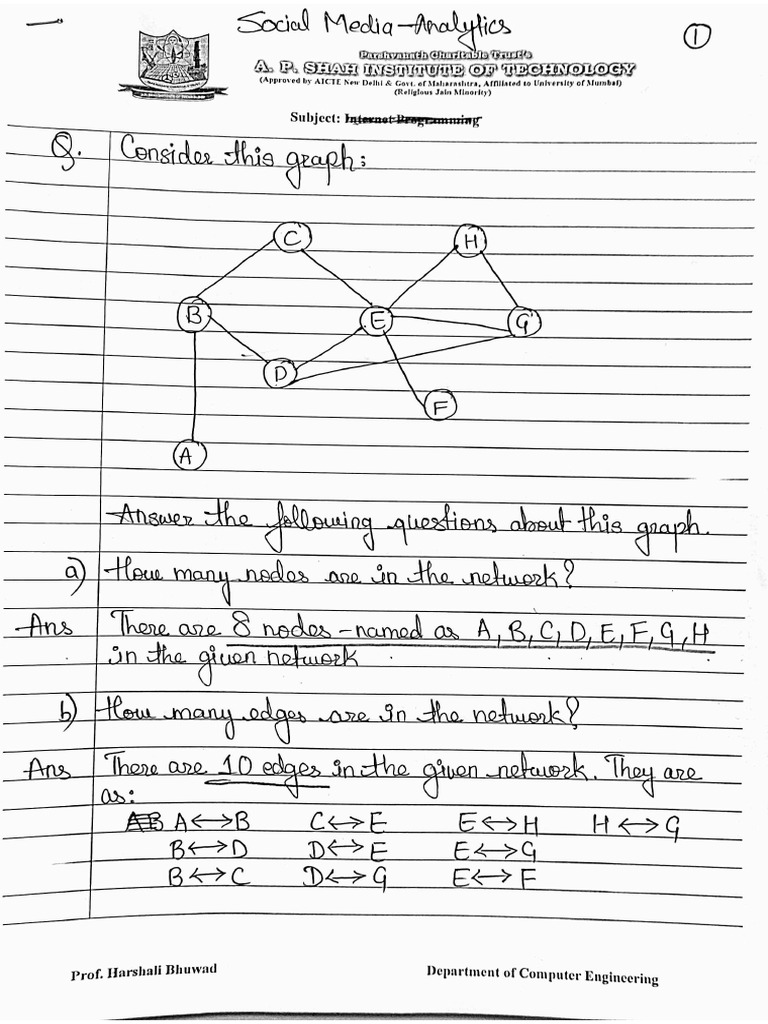 Social Media-Analytics
1
Parshvanath Charitable Trust's
A. P. SHAH INSTITUTE OF TECHNOLOGY
(Approved by AICTE New Delhi & Govt. of Maharashtra, Affiliated to University of Mumbai)
(Religious Jain Minority)
Subject: Internet Programming
Q. Consider this graph:
C
H
B
E
G
D
F
A
Answer the following questions about this graph.
a) How many nodes are in the network?
Ans There are 8 nodes - named as A, B, C, D, E, F, G, H
in the given network
b) How many edges are in the network?
Ans There are 10 edges in the given network. They are
as:
AB A↔B C↔E E↔H H↔G
B↔D D↔E E↔G
B↔C D↔G E↔F
Prof. Harshali Bhuwad Department of Computer Engineering